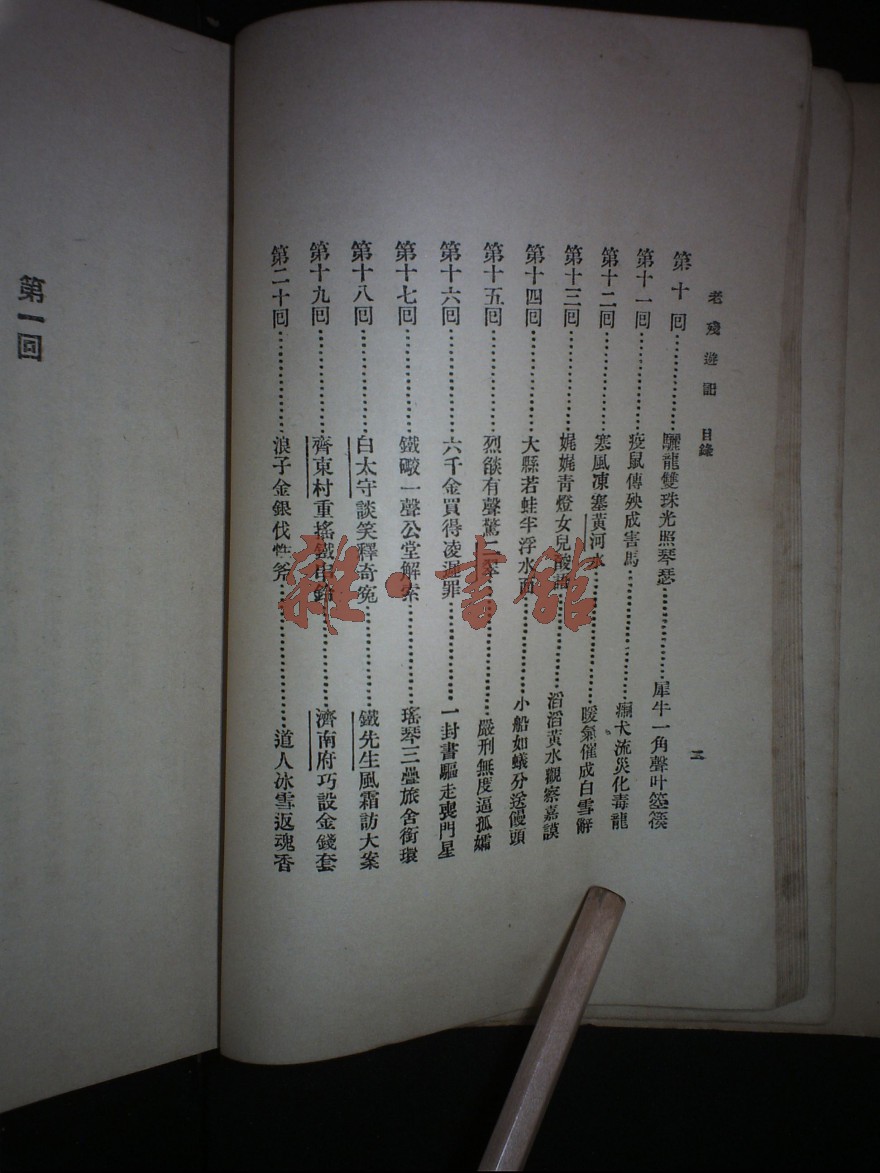 老殘遊記 目錄 三
第十回……………驪龍雙珠光照琴瑟……………犀牛一角聲叶箜篌
第十一回……………疫鼠傳殃成害馬……………瘈犬流災化毒龍
第十二回……………寒風凍塞黃河水……………暖氣催成白雪辭
第十三回……………娓娓青燈女兒酸語……………滔滔黃水觀察嘉謨
第十四回……………大縣若蛙半浮水面……………小船如蟻分送饅頭
第十五回……………烈燄有聲驚二翠……………嚴刑無度逼孤孀
第十六回……………六千金買得凌遲罪……………一封書驅走喪門星
第十七回……………鐵礮一聲公堂解索……………瑤琴三疊旅舍銜環
第十八回……………白太守談笑釋奇冤……………鐵先生風霜訪大案
第十九回……………齊東村重搖鐵串鈴……………濟南府巧設金錢套
第二十回……………浪子金銀伐性斧……………道人冰雪返魂香
第一回
雜·書館